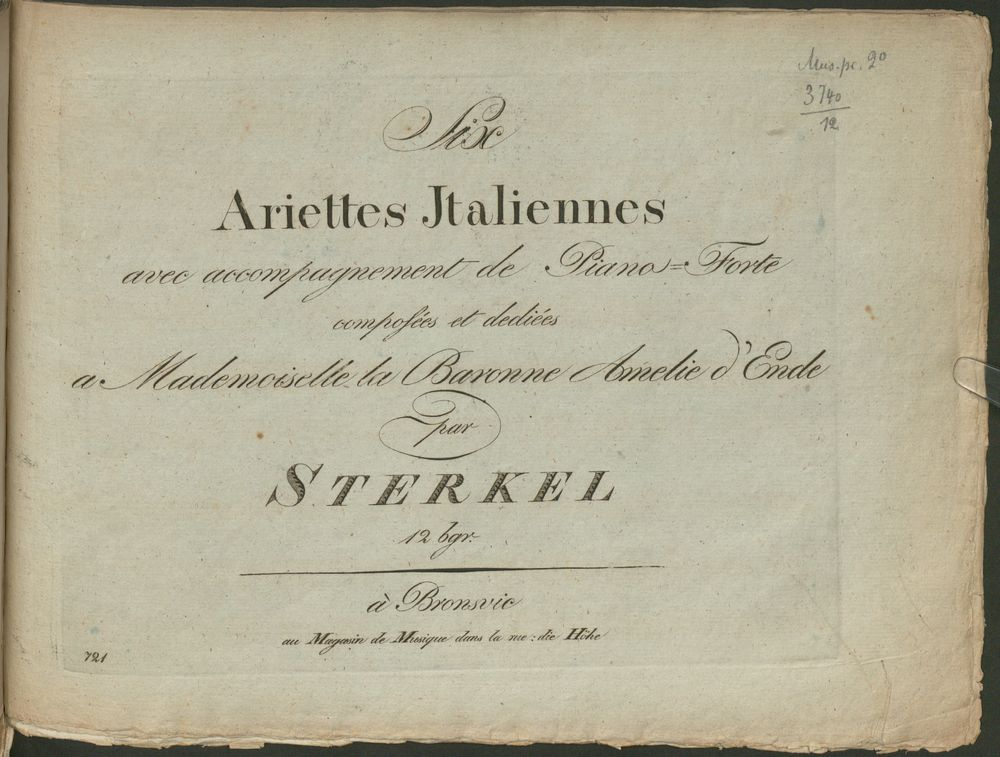 Mus. pr. 2°
3740
12
Six
Ariettes Jtaliennes
avec accompagnement de Piano=Forte
composées et dediées
a Mademoiselle la Baronne Amelie d'Ende
par
STERKEL
12 bgr.
à Bronsvic
au Magasin de Musique dans la rue: die Höhe
721